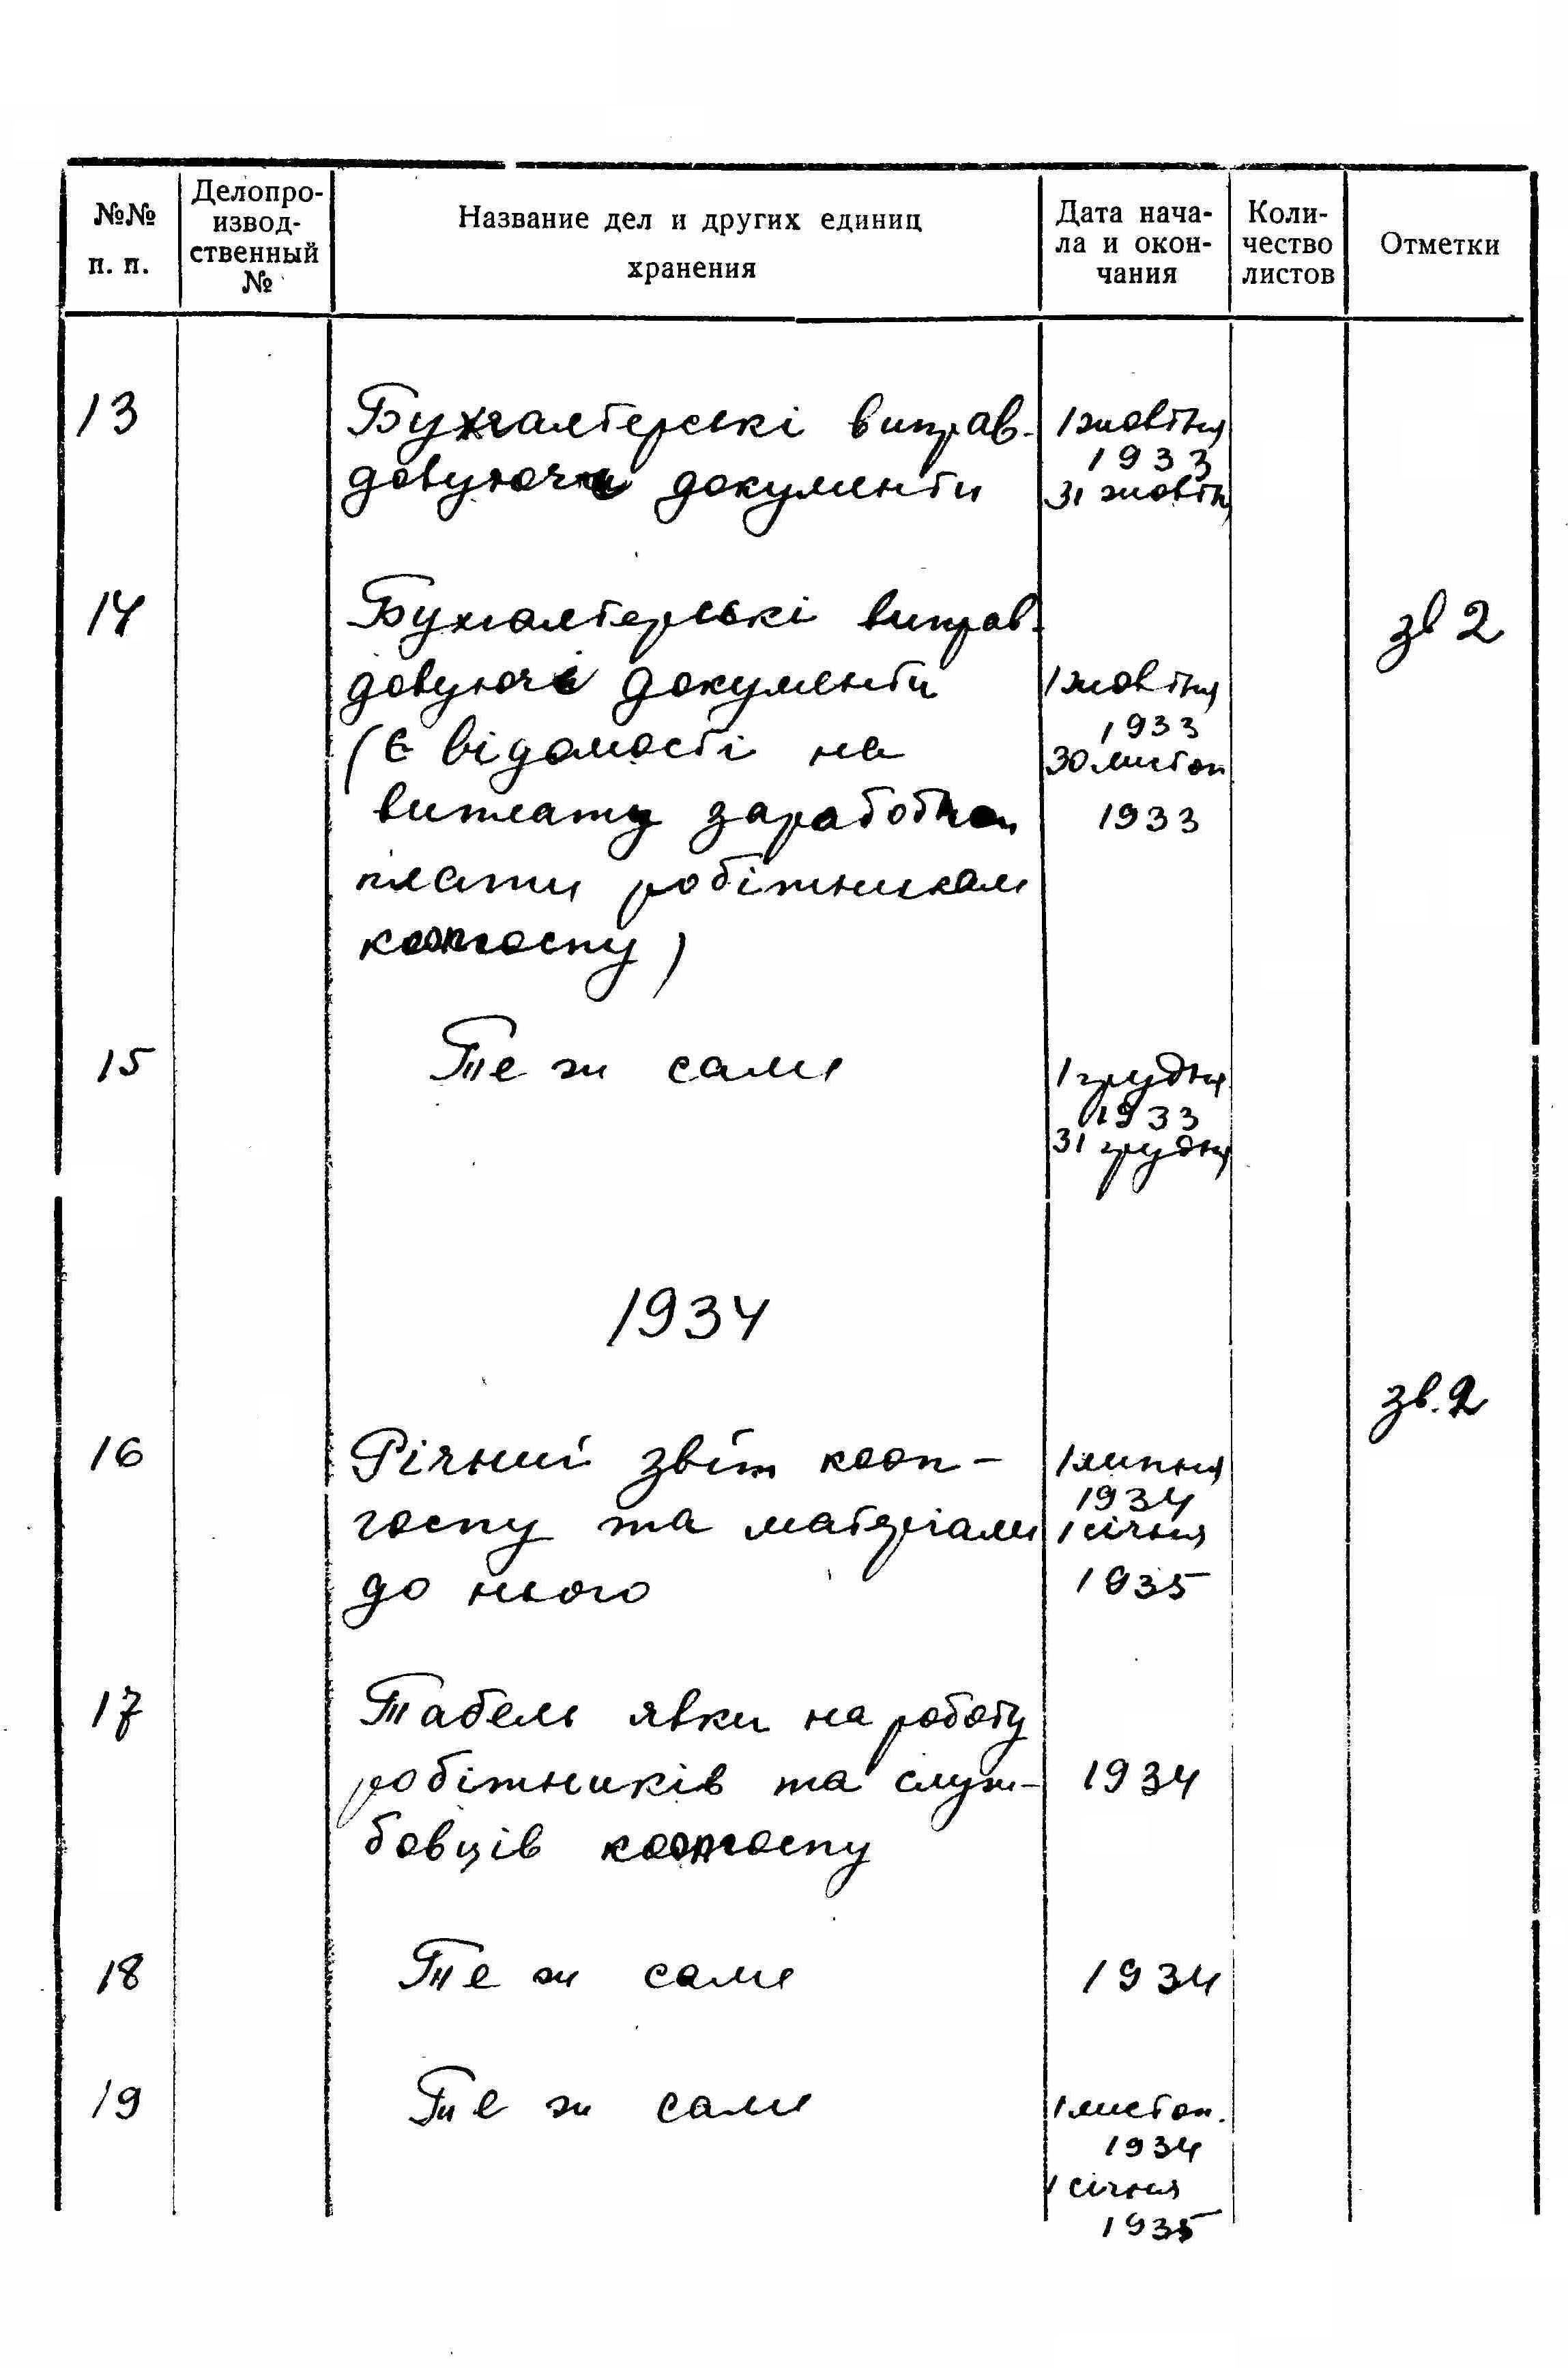 №№ п. п.
Делопро-
извод-
ственный
№
Название дел и других единиц
хранения
Дата нача-
ла и окон-
чания
Коли-
чество
листов
Отметки
13
Бухгалтерські виправ-
довуючи документи
1 жовтня
1933
31 жовтн
14
Бухгалтерські виправ-
довуючі документи
(є відомості на
виплату заработн
плати робітникам
коопгоспу)
1 жовтня
1933
30 листоп
1933
зв 2
15
Те ж саме
1 грудня
1933
31 грудня
1934
зв. 2
16
Річний звіт кооп-
госпу та матеріали
до нього
1 липня
1934
1 січня
1935
17
Табель явки на роботу
робітників та служ-
бовців коопгоспу
1934
18
Те ж саме
1934
19
Те ж саме
1 листоп.
1934
1 січня
1935